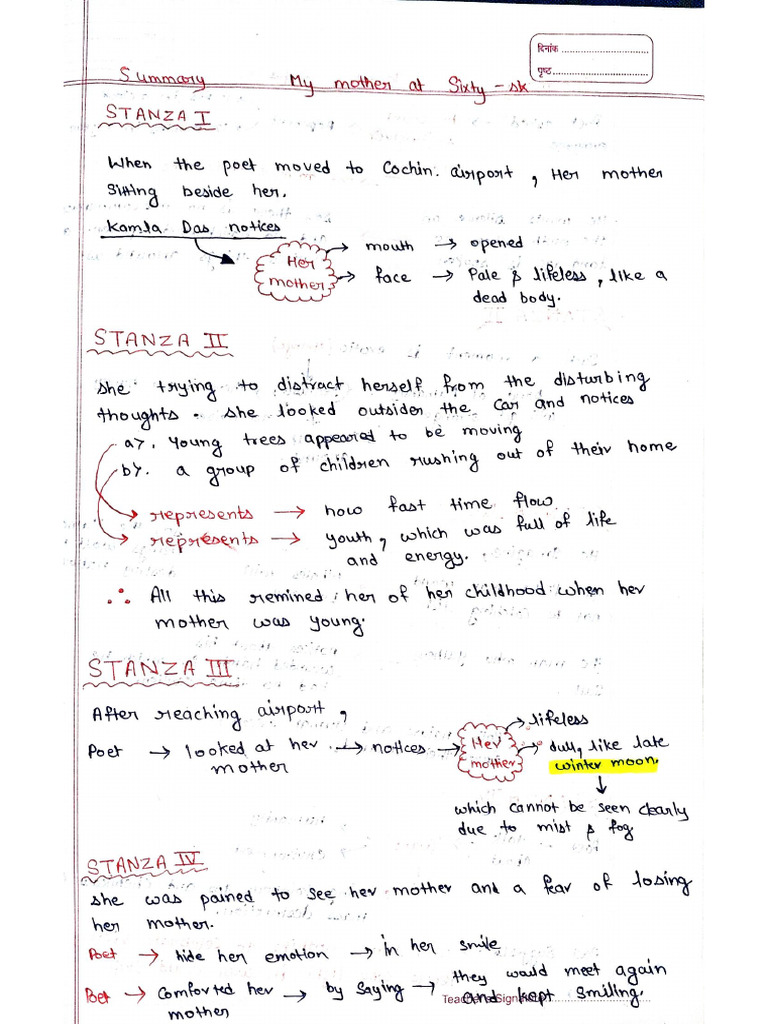 दिनांक ..............................
पृष्ठ..................................
Summary My mother at Sixty - sk
STANZA I
When the poet moved to Cochin airport, Her mother
Sitting beside her.
Kamla Das notices
Her mother → mouth → opened
→ face → Pale & lifeless, like a
dead body.
STANZA II
She trying to distract herself from the disturbing
thoughts. She looked outsider the car and notices
a>. Young trees appeared to be moving
b>. a group of children rushing out of their home
represents → how fast time flow
represents → youth, which was full of life
and energy.
∴ All this remined her of her childhood when her
mother was young.
STANZA III
After reaching airport,
Poet → looked at her mother → notices → Her mother → lifeless
→ dull, like late
winter moon.
↓
which cannot be seen clearly
due to mist & fog
STANZA IV
She was pained to see her mother and a fear of losing
her mother.
Poet → hide her emotion → in her smile
Poet → Comforted her mother → by saying → they would meet again
and kept smiling.
Teacher's Sign